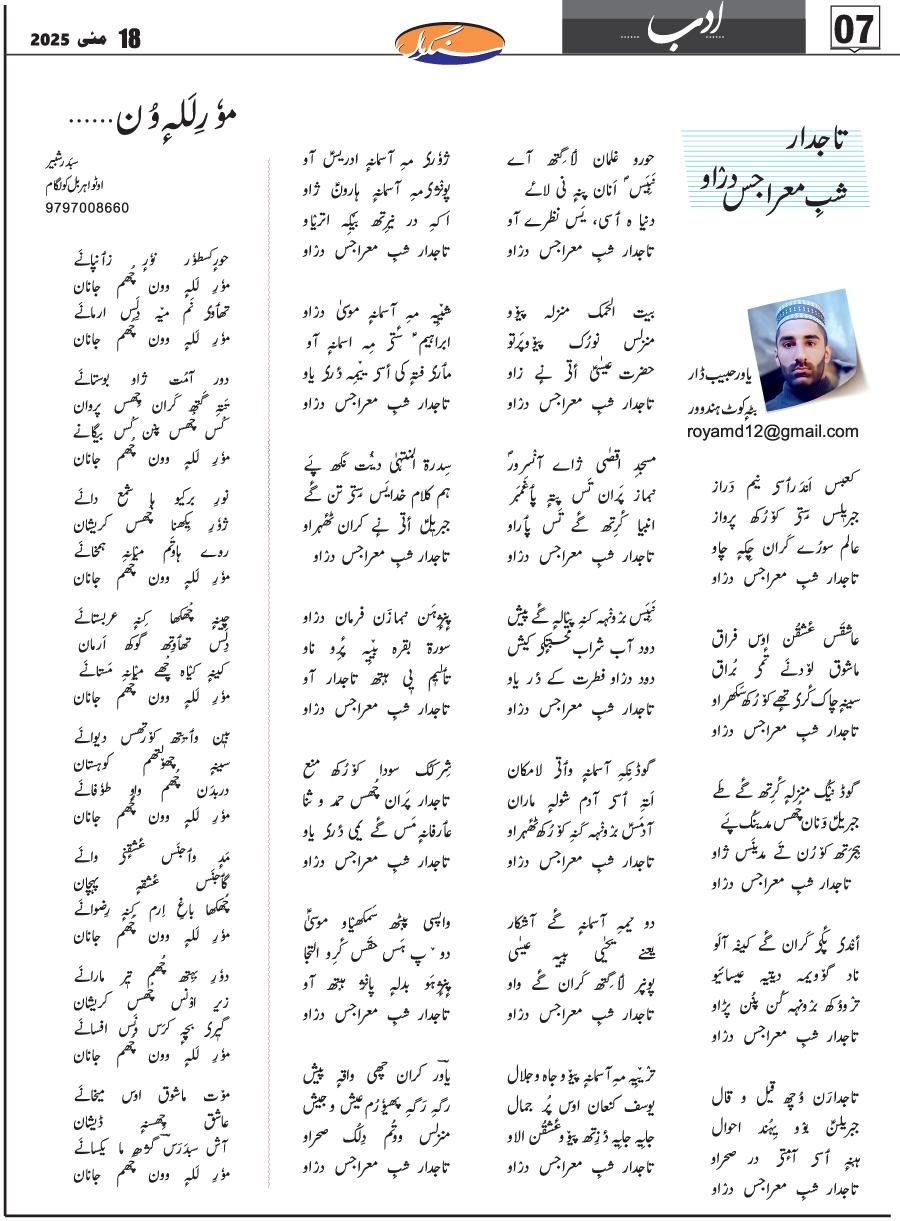 07
ادب
سنگرمال
18 مئی 2025
تاجدار
شبِ معراجس درٛاو
یاور حبیب ڈار
بٹہٕ کوٹ ہندوور
royamd12@gmail.com
کعبس اَندر أسۍ نیم دَراز
جبریلس ستۍ کوٚرُکھ پرواز
عالم سورُے کَران چکہٕ چاو
تاجدار شبِ معراجس درٛاو
عاشقَس عٔشقُن اوٚس فراق
ماشوق لوٚدنے تٔمۍ بُراق
سینہٕ چاک کٔرۍ تھے کوٚرُکھ سَکھراو
تاجدار شبِ معراجس درٛاو
گوڈ نیُک منزلہٕ کٔرِتھ گے طے
جبریلؑ وَنان چھُس مدینک پَے
ہِجرَتھ کوٚرُن تے مدینَس ژاو
تاجدار شبِ معراجس درٛاو
أندۍ پٔکۍ کَران گے کیفہٕ آلَو
ناد گوٚویمہٕ دیتیہِ عیسائیو
تروٚوُکھ برٛونہہ کُن پَنُن پڑاو
تاجدار شبِ معراجس درٛاو
تاجدارَن وُچھ قیل و قال
جبریلنؑ بوٚو یِہُند احوال
ہیتہٕ أسۍ أمتۍ در صحراو
تاجدار شبِ معراجس درٛاو
حورو غلمان لأگتھ آے
نَبِیَسؐ اَنان پنہٕ نی لاے
دنیا ہ أسی، یَس نظرے آو
تاجدار شبِ معراجس درٛاو
بیت الحمک منزلہ پیوٚو
منزلس نورُک پیوٚوپَرتو
حضرت عیسیٰؑ أتۍ نے زاو
تاجدار شبِ معراجس درٛاو
مسجدِ اقصٰی ژاے آنسرورؐ
نماز پَران تَس پتہٕ پأغَمبر
انبیا کٔرِتھ گے تَس پأراو
تاجدار شبِ معراجس درٛاو
نَبِیَس برٛونہہ کنہ پیالہٕ گے پیش
دود آب شراب کیش
دود درٛاو فطرت کے دٔر یاو
تاجدار شبِ معراجس درٛاو
گوڈنِکہِ آسمانہٕ وأتۍ لامکان
أتہِ أسۍ آدم شولہٕ ماران
آدمَسؑ برٛونہہ کَنہِ کوٚرُکھ ٹھہراو
تاجدار شبِ معراجس درٛاو
دو یمہٕ آسمانہٕ گے آشکار
یعنے یحیٰی بییہِ عیسیٰ
پونپر لأگِتھ کَران گے واو
تاجدار شبِ معراجس درٛاو
ترٛیٚیِہ مہِ آسمانہٕ پیوٚو جاہ وجلال
یوسف کنعان اوس پُر جمال
جایہِ جایہِ دٔزِتھ پیوٚو عٔشقُن الاو
تاجدار شبِ معراجس درٛاو
ژوٗرۍ مہِ آسمانہٕ ادریسؑ آو
پوٗنژۍ مہِ آسمانہٕ ہارونؑ ژاو
اَکہِ در نیٖرتھ بیٚکہِ اترٛیاو
تاجدار شبِ معراجس درٛاو
شیٚیہِ مہِ آسمانہٕ موسیٰ درٛاو
ابراہیمؑ سٔتۍ مہِ اسمانہٕ آو
مأرۍ فتہٕ کی أسۍ ییمہٕ دٔرۍ یاو
تاجدار شبِ معراجس درٛاو
سِدرۃ المنتہیٰ دیُت نکھ پَے
ہم کلام خدایَس ستۍ تن گے
جبریلؑ أتۍ نے کران ٹھہراو
تاجدار شبِ معراجس درٛاو
پنژہَن نمازَن فرمان درٛاو
سورۃ بقرہ بییہِ پرٛو ناو
تألیٖم پی ہیتھ تاجدار آو
تاجدار شبِ معراجس درٛاو
شِرکُک سودا کوٚرُکھ منع
تاجدار پَران چھُس حمد و ثنا
عأرفانہٕ مَس گے یمی دٔرۍ یاو
تاجدار شبِ معراجس درٛاو
واپسی پیٹھ سَمکھیاو موسیٰؑ
دوٚپ ہَس حقَس کٔرِو التجا
پنژہَو بدلہٕ پانژ ہیتھ آو
تاجدار شبِ معراجس درٛاو
یاورؔ کران چھی واقہٕ پیش
رگہِ رَگہِ پھیوٗرُم عیش و جیش
منزلس ووٚتُم دِلُک صحراو
تاجدار شبِ معراجس درٛاو
موٗرِ لَلہٕ وُن......
سبدر شبیر
اوٹو اہربل کولگام
9797008660
حورِ کَستوٗر نوٗرِ زأنپانے
موٗرِ لَلہٕ وون چھُم جانان
تھأوۍ نَم میٚہ دِلَس ارمانے
موٗرِ لَلہٕ وون چھُم جانان
دور اَمُت ژاو بوستانے
پَتہٕ گتھ کَران چھس پروان
کَس چھس پنن کُس بیگانے
موٗرِ لَلہٕ وون چھُم جانان
نورِ برکیو با شمع دانے
ژوٗرِ یکھنا چھُس کریشان
روے ہاوتم میٚانہِ ہمخانے
موٗرِ لَلہٕ وون چھُم جانان
چینہٕ چھُکھا کِنہٕ عربستانے
دِلَس تھأوِتھ گوکھ اَرمان
کینہٕ کیٛاہ چھُے میٚانہِ مستانے
موٗرِ لَلہٕ وون چھُم جانان
بیٚن وأیتھ کوٗرتھس دیوانے
سینہٕ چھولُتھم کوہستان
دربدَن چھُم واو طوٗفانے
موٗرِ لَلہٕ وون چھُم جانان
مَیہِ وأجنَس عٔشقنۍ وانے
گأجنَس عٔشقہٕ پہچان
چھُکھا باغِ اِرم کِنہٕ رِضوانے
موٗرِ لَلہٕ وون چھُم جانان
دوٗرِ بیٖہتھ چھُم تیٖر مارانے
زیرِ اوٚنَس چھُس کریشان
گیری بچہٕ کرَس دٔس افسانے
موٗرِ لَلہٕ وون چھُم جانان
موٚت ماشوق اوس میخانے
عاشق چھسنہٕ ڈیشان
آش سبدرَسؔ گرٛھ ما یکسانے
موٗرِ لَلہٕ وون چھُم جانان